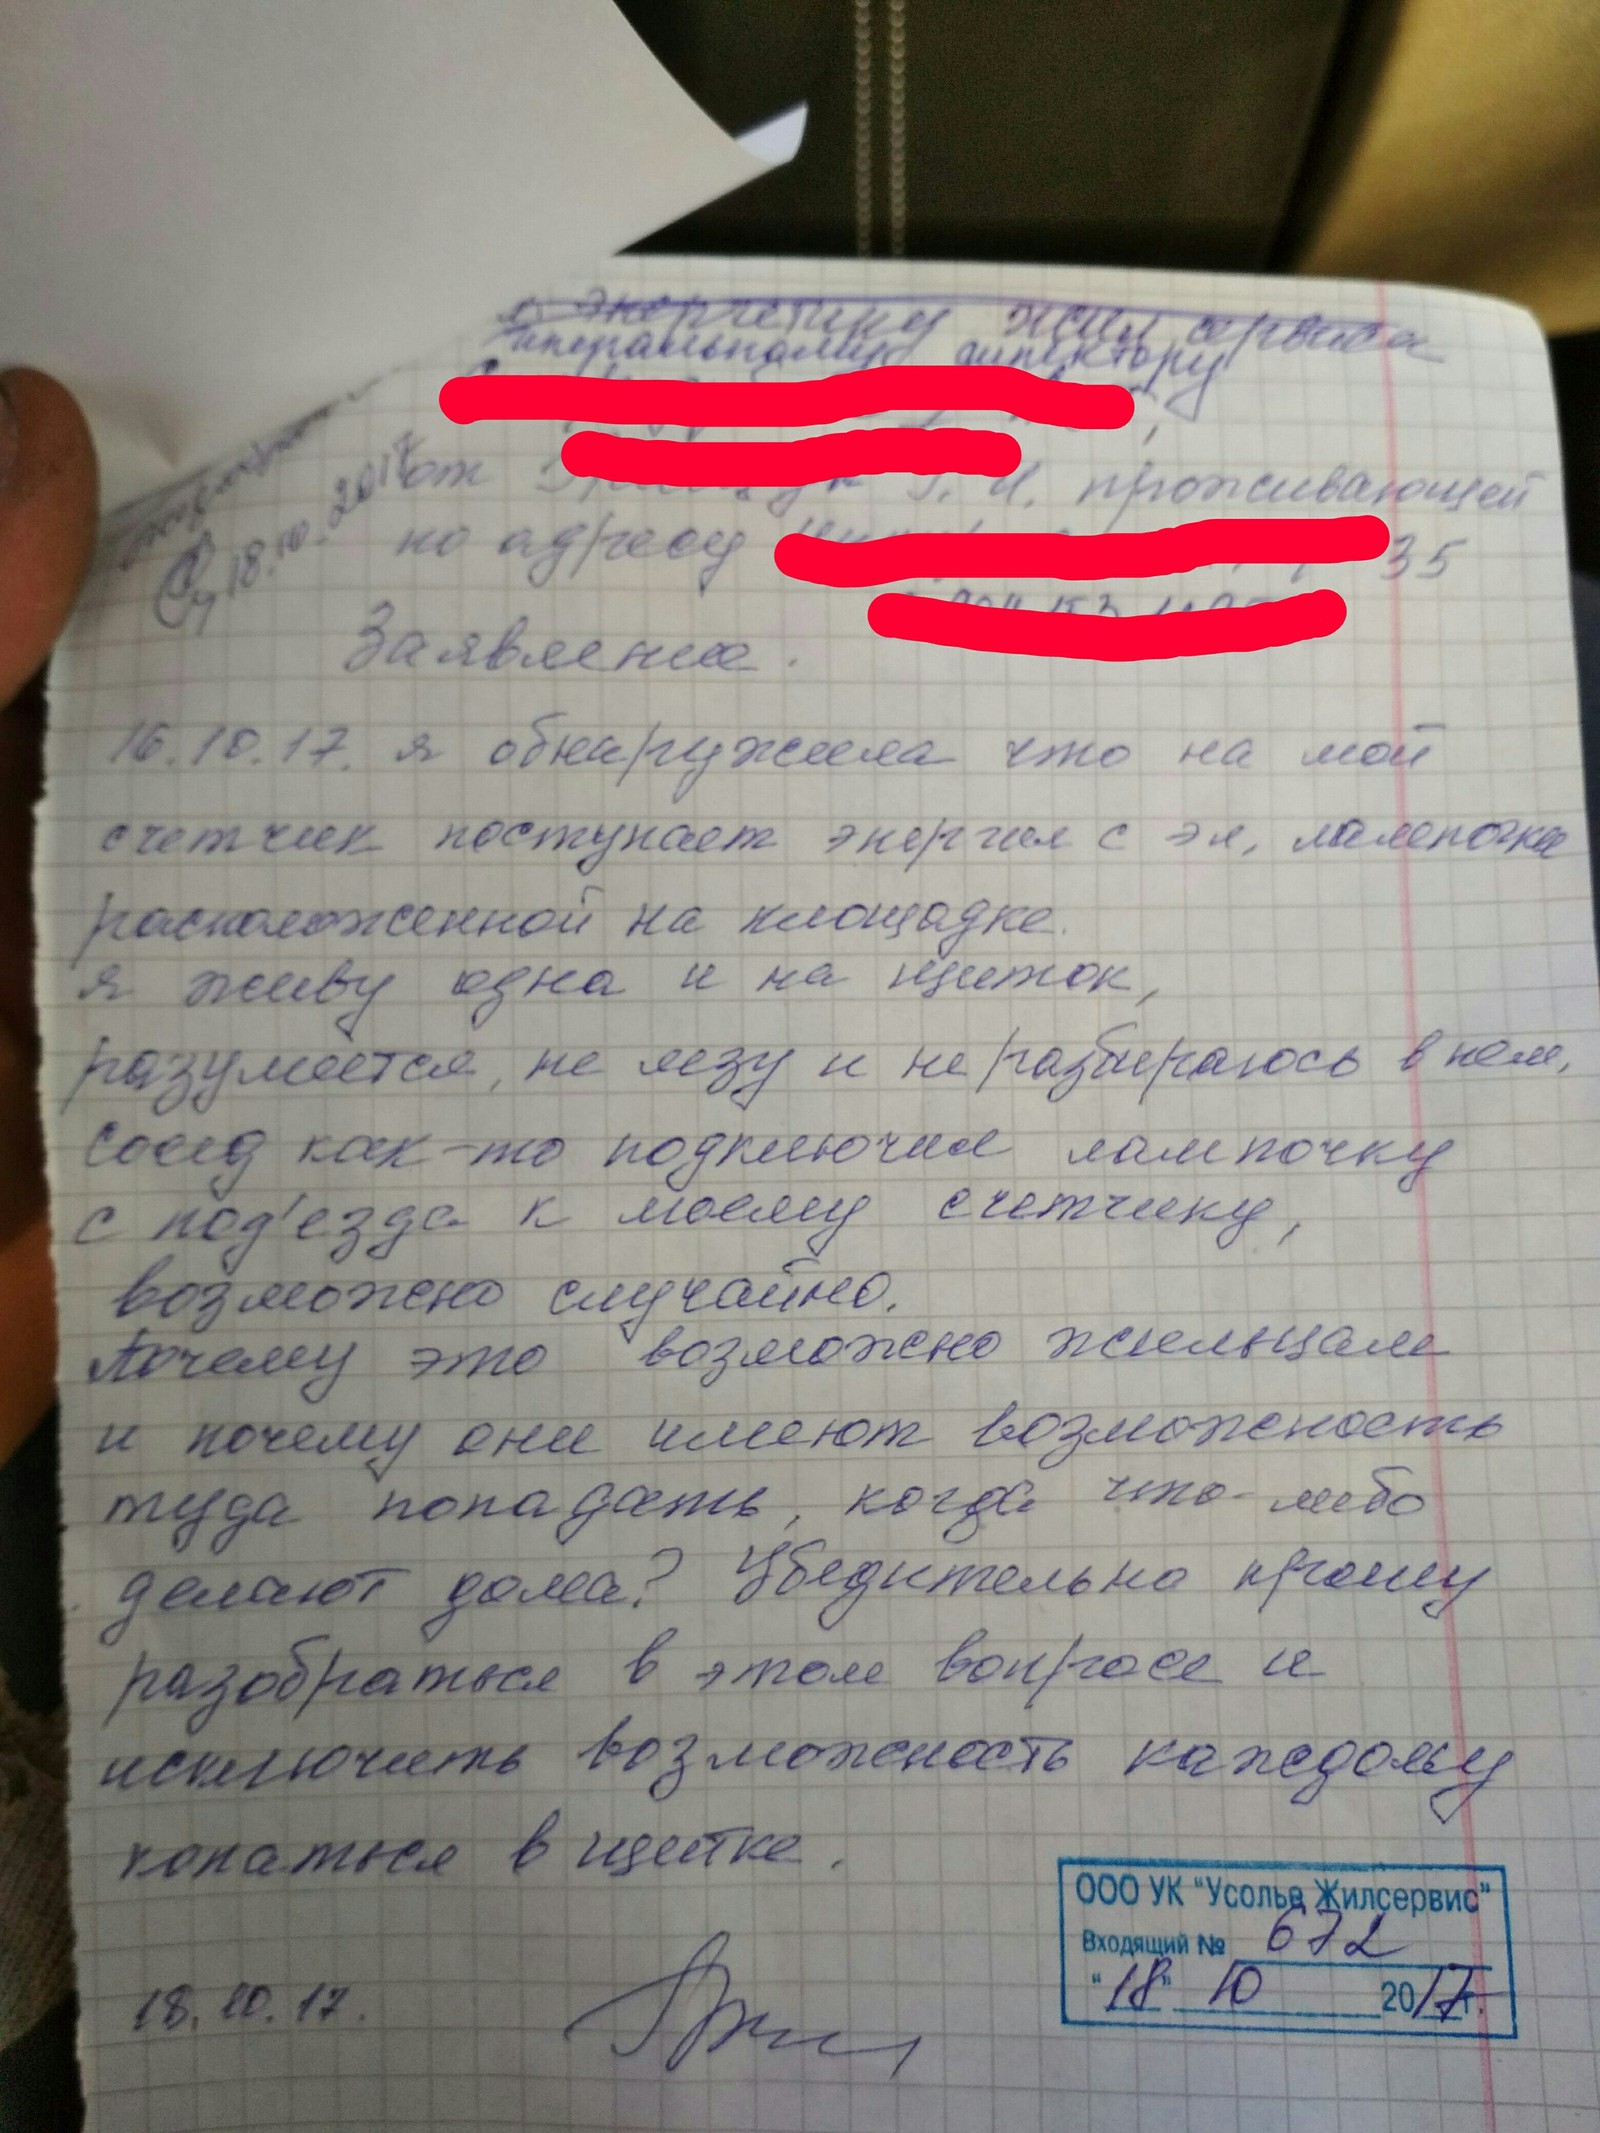 к энергетику жил сервиса
генеральному директору
от Г. И. проживающей
по адресу 35
18.10.2017
Заявление.
16.10.17. я обнаружила что на мой
счетчик поступает энергия с эл. лампочки
расположенной на площадке.
я живу одна и на щиток,
разумеется, не лезу и не разбираюсь в нем,
Сосед как-то подключил лампочку
с под'езда к моему счетчику,
возможно случайно.
Почему это возможно жильцам
и почему они имеют возможность
туда попадать, когда что-либо
делают дома? Убедительно прошу
разобраться в этом вопросе и
исключить возможность каждому
копаться в щитке.
18.10.17.
ООО УК "Усолье Жилсервис"
Входящий № 672
"18" 10 2017г.